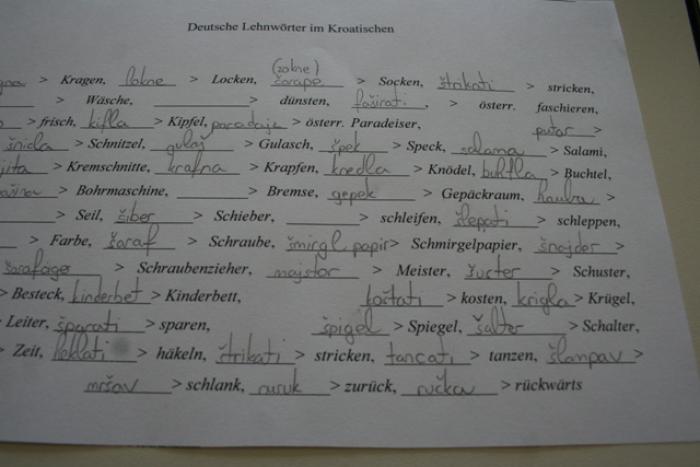 Deutsche Lehnwörter im Kroatischen
(zokne)
> Kragen, lokne > Locken, čarape > Socken, štrikati > stricken,
> Wäsche, > dünsten, faširati, > österr. faschieren,
> frisch, kifla > Kipfel, paradajz > österr. Paradeiser, putar >
šnicla > Schnitzel, gulaj > Gulasch, špek > Speck, salama > Salami,
> Kremschnitte, krafna > Krapfen, knedla > Knödel, buhtla > Buchtel,
> Bohrmaschine, > Bremse, gepek > Gepäckraum, hauba >
> Seil, šiber > Schieber, > schleifen, šlepati > schleppen,
> Farbe, šaraf > Schraube, šmirgl papir > Schmirgelpapier, šnajder >
šarafciger > Schraubenzieher, majstor > Meister, šucter > Schuster,
> Besteck, kinderbet > Kinderbett, koštati > kosten, krigla > Krügel,
> Leiter, šparati > sparen, špigel > Spiegel, šalter > Schalter,
> Zeit, heklati > häkeln, štrikati > stricken, tancati > tanzen, >
mršav > schlank, > zurück, > rückwärts